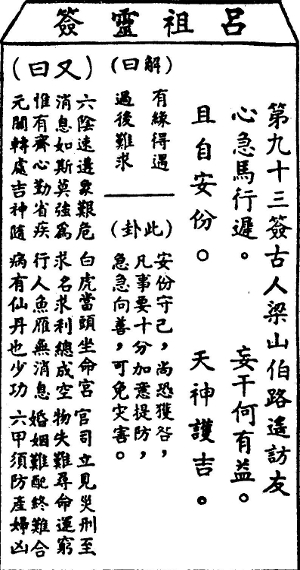 呂祖靈簽
第九十三簽古人梁山伯路遙訪友
心急馬行遲。 妄干何有益。
且自安份。 天神護吉。
(解曰)
有緣得遇
過後難求
(此卦)
安份守己，尚恐獲咎，
凡事要十分加意提防，
急急向善，可免灾害。
(又曰)
六陰速邅象艱危 白虎當頭坐命宮 官司立見災刑至
消息如斯莫強為 求名求利總成空 物失難尋命運窮
惟有齊心勤省疾 行人魚雁無消息 婚姻難配終難合
元關轉處吉神隨 病有仙丹也少功 六甲須防產婦凶